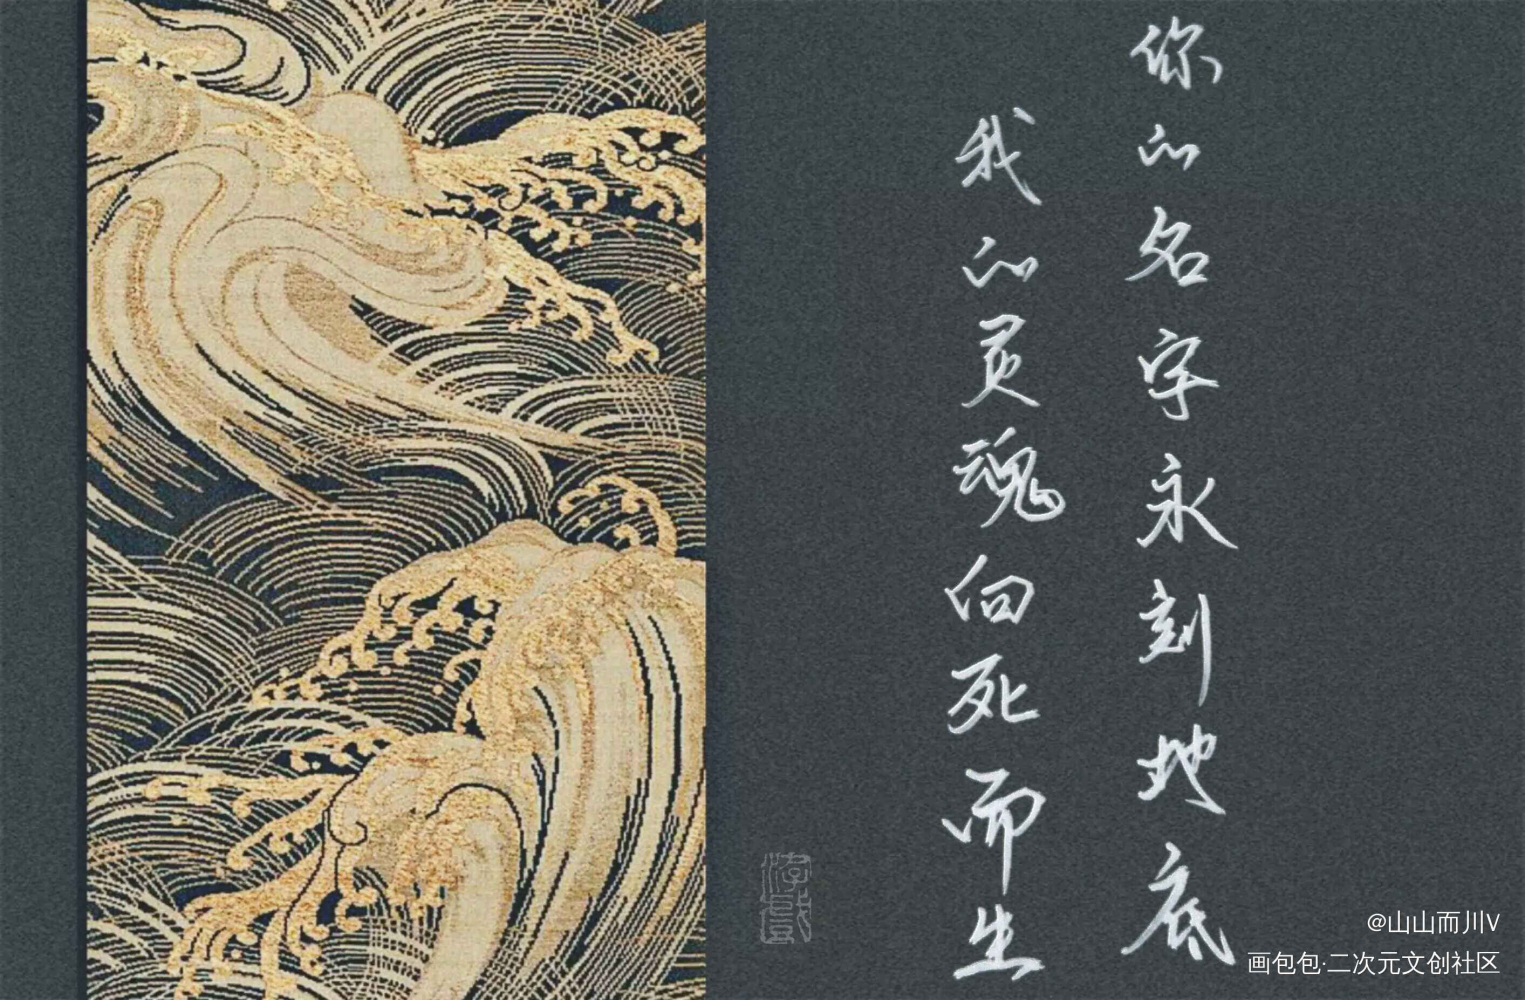 你的名字永刻地底
我的灵魂向死而生
@山山而川V
画包包·二次元文创社区